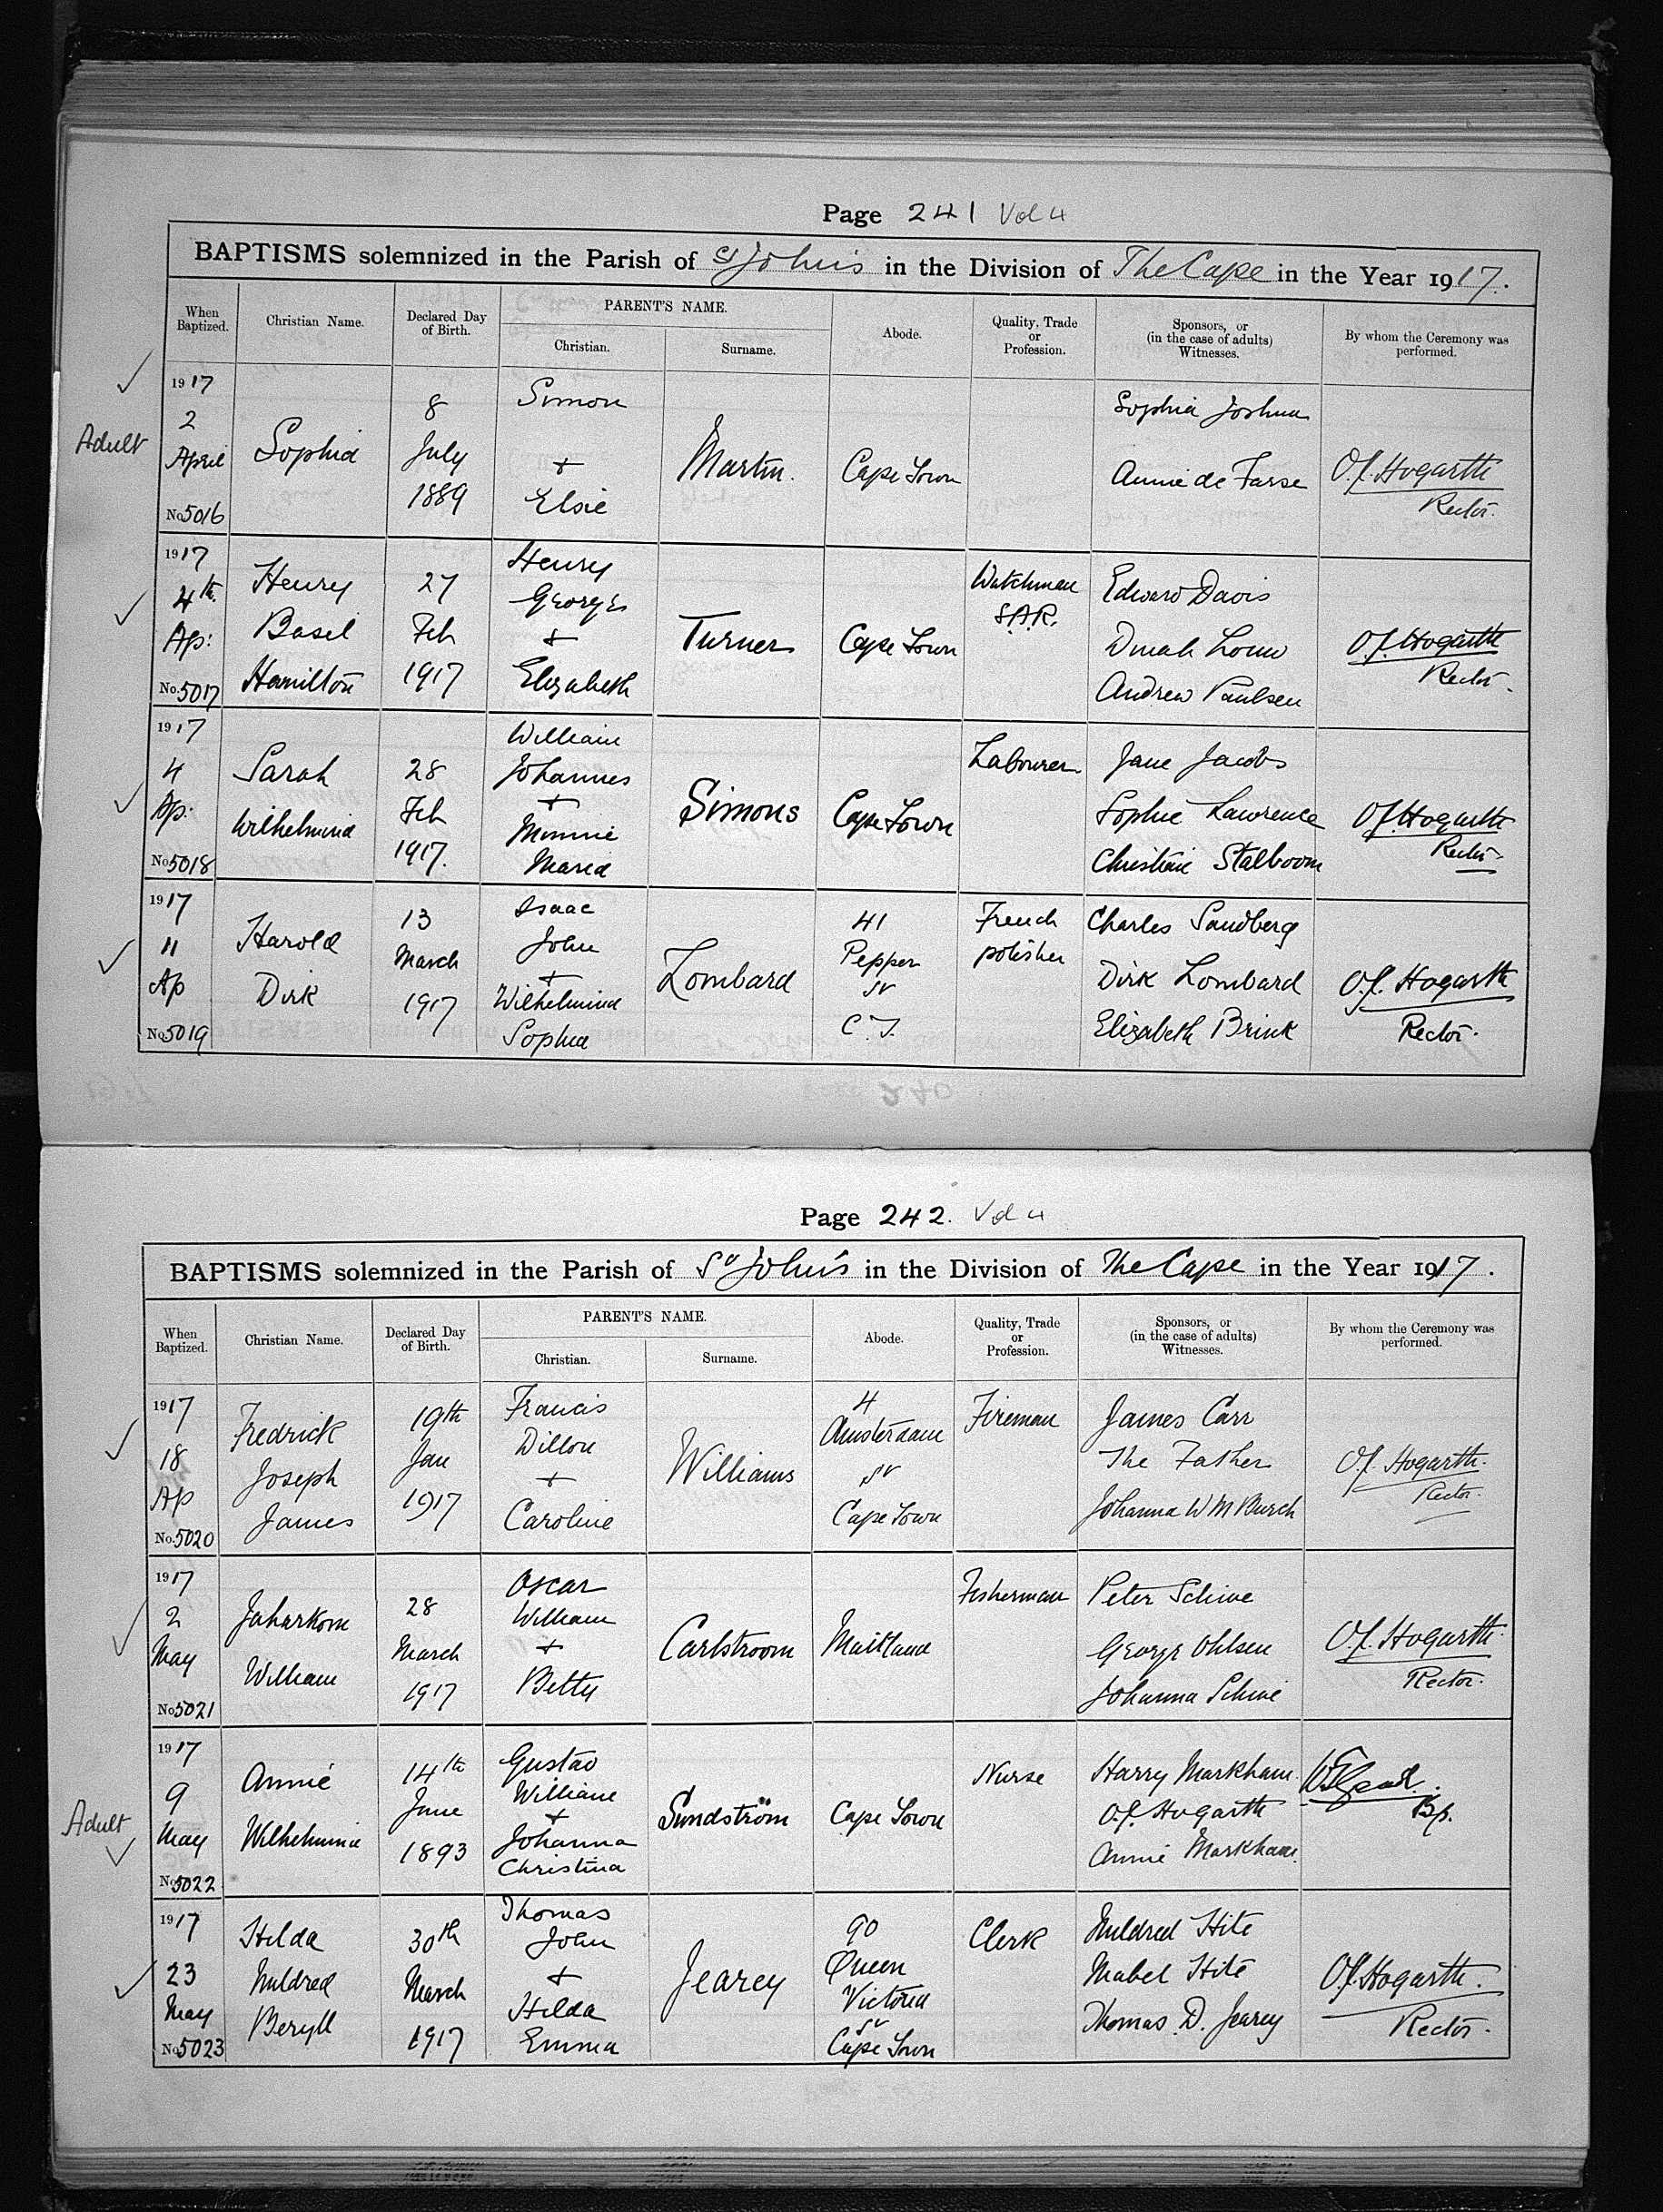 Page 241 Vol 4
BAPTISMS solemnized in the Parish of St John's in the Division of The Cape in the Year 1917.
When Baptized.
Christian Name.
Declared Day of Birth.
PARENT'S NAME.
Christian.
Surname.
Abode.
Quality, Trade or Profession.
Sponsors, or (in the case of adults) Witnesses.
By whom the Ceremony was performed.
Adult
1917
2
April
No 5016
Sophia
8
July
1889
Simon
+
Elsie
Martin.
Cape Town
Sophia Joshua
Annie de
O.J. Hogarth
Rector.
1917
4th.
Ap:
No. 5017
Henry
Basil
Hamilton
27
Feb
1917
Henry
George
+
Elizabeth
Turner
Cape Town
Watchman
S.A.R.
Edward Davis
Dinah Louw
Andrew Paulsen
O.J. Hogarth
Rector.
1917
4
Ap:
No 5018
Sarah
Wilhelmina
28
Feb
1917.
William
Johannes
+
Minnie
Maria
Simons
Cape Town
Labourer
Jane Jacobs
Sophie Lawrence
Christine Stalboom
O.J. Hogarth
Rector
1917
11
Ap
No 5019
Harold
Dirk
13
March
1917
Isaac
John
+
Wilhelmina
Sophia
Lombard
41
Pepper
St
C.T.
French
polisher
Charles Sandberg
Dirk Lombard
Elizabeth Brink
O.J. Hogarth
Rector.
Page 242. Vol 4
BAPTISMS solemnized in the Parish of St John's in the Division of The Cape in the Year 1917.
When Baptized.
Christian Name.
Declared Day of Birth.
PARENT'S NAME.
Christian.
Surname.
Abode.
Quality, Trade or Profession.
Sponsors, or (in the case of adults) Witnesses.
By whom the Ceremony was performed.
1917
18
Ap
No. 5020
Fredrick
Joseph
James
19th
Jan
1917
Francis
Dillon
+
Caroline
Williams
4
Amsterdam
St
Cape Town
Fireman
James Carr
The Father
Johanna W M Burch
O.J. Hogarth.
Rector.
1917
2
May
No 5021
William
28
March
1917
Oscar
William
+
Betty
Carlstroom
Maitland
Fisherman
Peter Schive
George Ohlsen
Johanna Schive
O.J. Hogarth.
Rector.
Adult
1917
9
May
No 5022
Annie
Wilhelmina
14th
June
1893
Gustav
William
+
Johanna
Christina
Sundström
Cape Town
Nurse
Harry Markham.
O.J. Hogarth
Annie Markham.
Bp.
1917
23
May
No 5023
Hilda
Mildred
Beryll
30th
March
1917
Thomas
John
+
Hilda
Emma
Jearey
90
Queen
Victoria
St
Cape Town
Clerk
Mildred Hite
Mabel Hite
Thomas D. Jearey
O.J. Hogarth.
Rector.